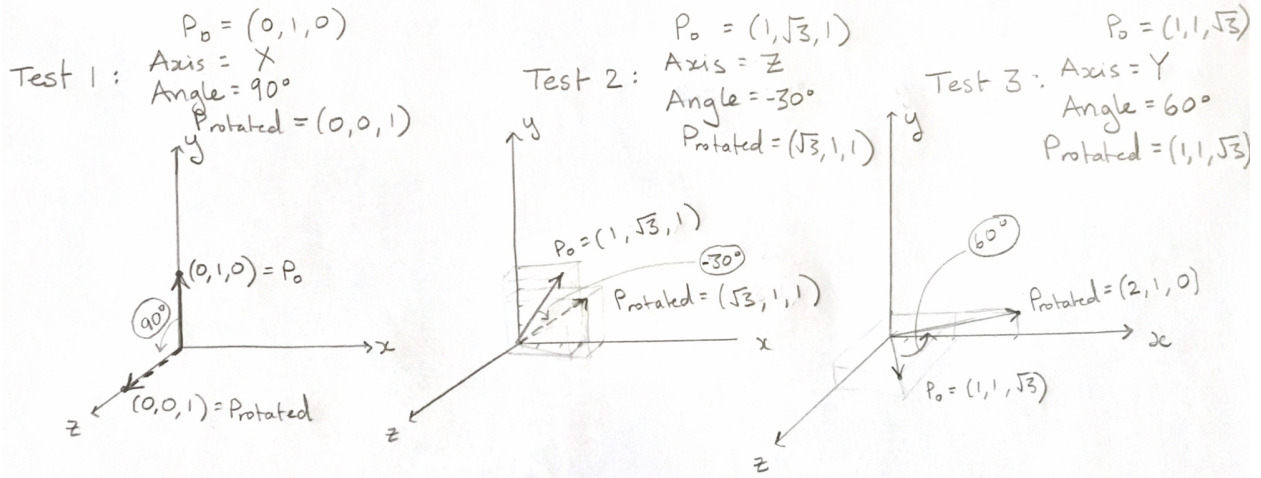 Test 1:
P₀ = (0,1,0)
Axis = X
Angle = 90°
Protated = (0,0,1)
y
(0,1,0) = P₀
90°
x
(0,0,1) = Protated
z
Test 2:
P₀ = (1,√3,1)
Axis = Z
Angle = -30°
Protated = (√3,1,1)
y
P₀ = (1,√3,1)
-30°
Protated = (√3,1,1)
x
z
Test 3:
P₀ = (1,1,√3)
Axis = Y
Angle = 60°
Protated = (1,1,√3)
y
60°
Protated = (2,1,0)
x
P₀ = (1,1,√3)
z